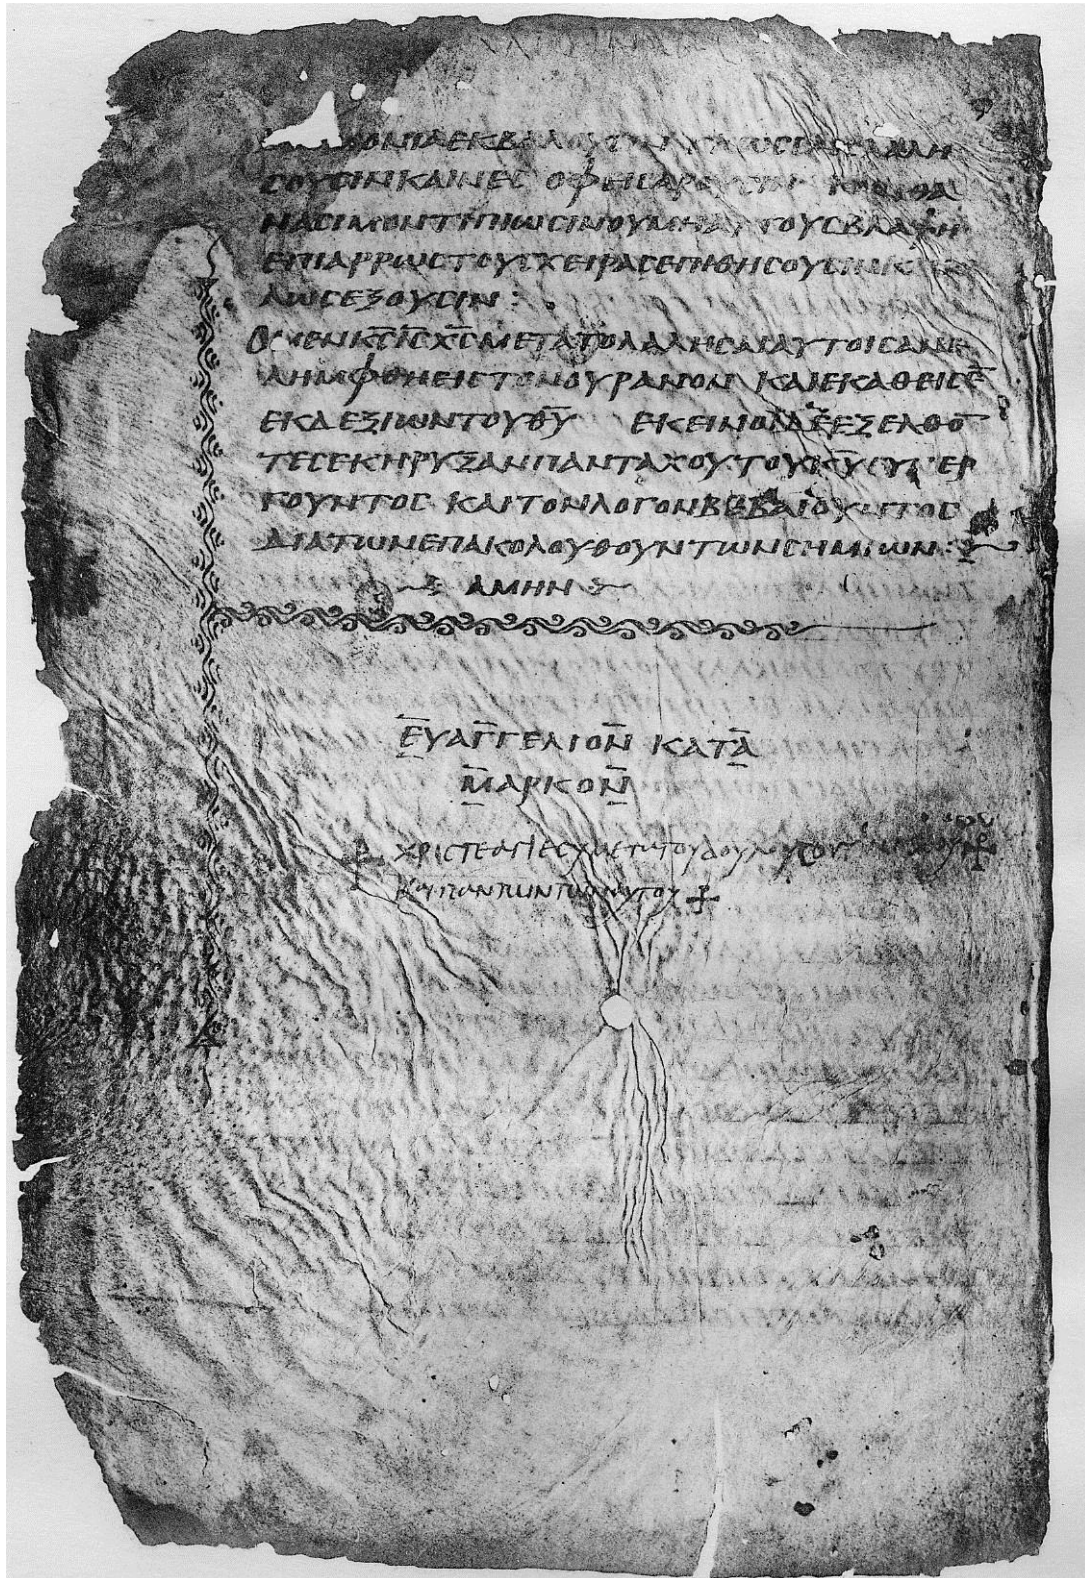 ΟΝΙΑ ΕΚΒΑΛΟΥΣΙΝ
ΣΟΥΣΙΝ ΚΑΙΝΕΣ ΟΦΕΙΣ ΑΡΟΥΣΙΝ
ΝΑΣΙΜΟΝ ΤΙ ΠΙΩΣΙΝ ΟΥ ΜΗ ΑΥΤΟΥΣ ΒΛΑΨΗ
ΕΠΙ ΑΡΡΩΣΤΟΥΣ ΧΕΙΡΑΣ ΕΠΙΘΗΣΟΥΣΙΝ
ΛΩΣ ΕΞΟΥΣΙΝ :
Ο ΜΕΝ Κ̅Σ̅ Ι̅Σ̅ Χ̅Σ̅ ΜΕΤΑ ΤΟ ΛΑΛΗΣΑΙ ΑΥΤΟΙΣ ΑΝΕ
ΛΗΜΦΘΗ ΕΙΣ ΤΟΝ ΟΥΡΑΝΟΝ ΚΑΙ ΕΚΑΘΕΙΣΕ̅
ΕΚ ΔΕΞΙΩΝ ΤΟΥ Θ̅Υ̅ ΕΚΕΙΝΟΙ ΔΕ ΕΞΕΛΘΟ̅
ΤΕΣ ΕΚΗΡΥΞΑΝ ΠΑΝΤΑΧΟΥ ΤΟΥ Κ̅Υ̅ ΣΥΝΕΡ
ΓΟΥΝΤΟΣ ΚΑΙ ΤΟΝ ΛΟΓΟΝ ΒΕΒΑΙΟΥΝΤΟΣ
ΔΙΑ ΤΩΝ ΕΠΑΚΟΛΟΥΘΟΥΝΤΩΝ ΣΗΜΙΩΝ :
ΑΜΗΝ
ΕΥΑΓΓΕΛΙΟΝ ΚΑΤΑ
ΜΑΡΚΟΝ
ΧΡΙΣΤΕ ΑΓΙΕ ΣΥ ΜΕΤΑ ΤΟΥ ΔΟΥΛΟΥ ΣΟΥ
ΚΑΙ ΠΑΝΤΩΝ ΤΩΝ ΑΥΤΟΥ